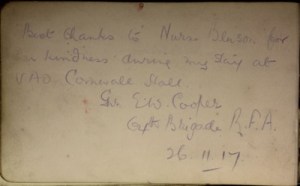 Best thanks to Nurse Benson for
her kindness during my stay at
V.A.D. Cornwall Hall
E.W. Cooper
Brigade R.F.A.
26.11.17